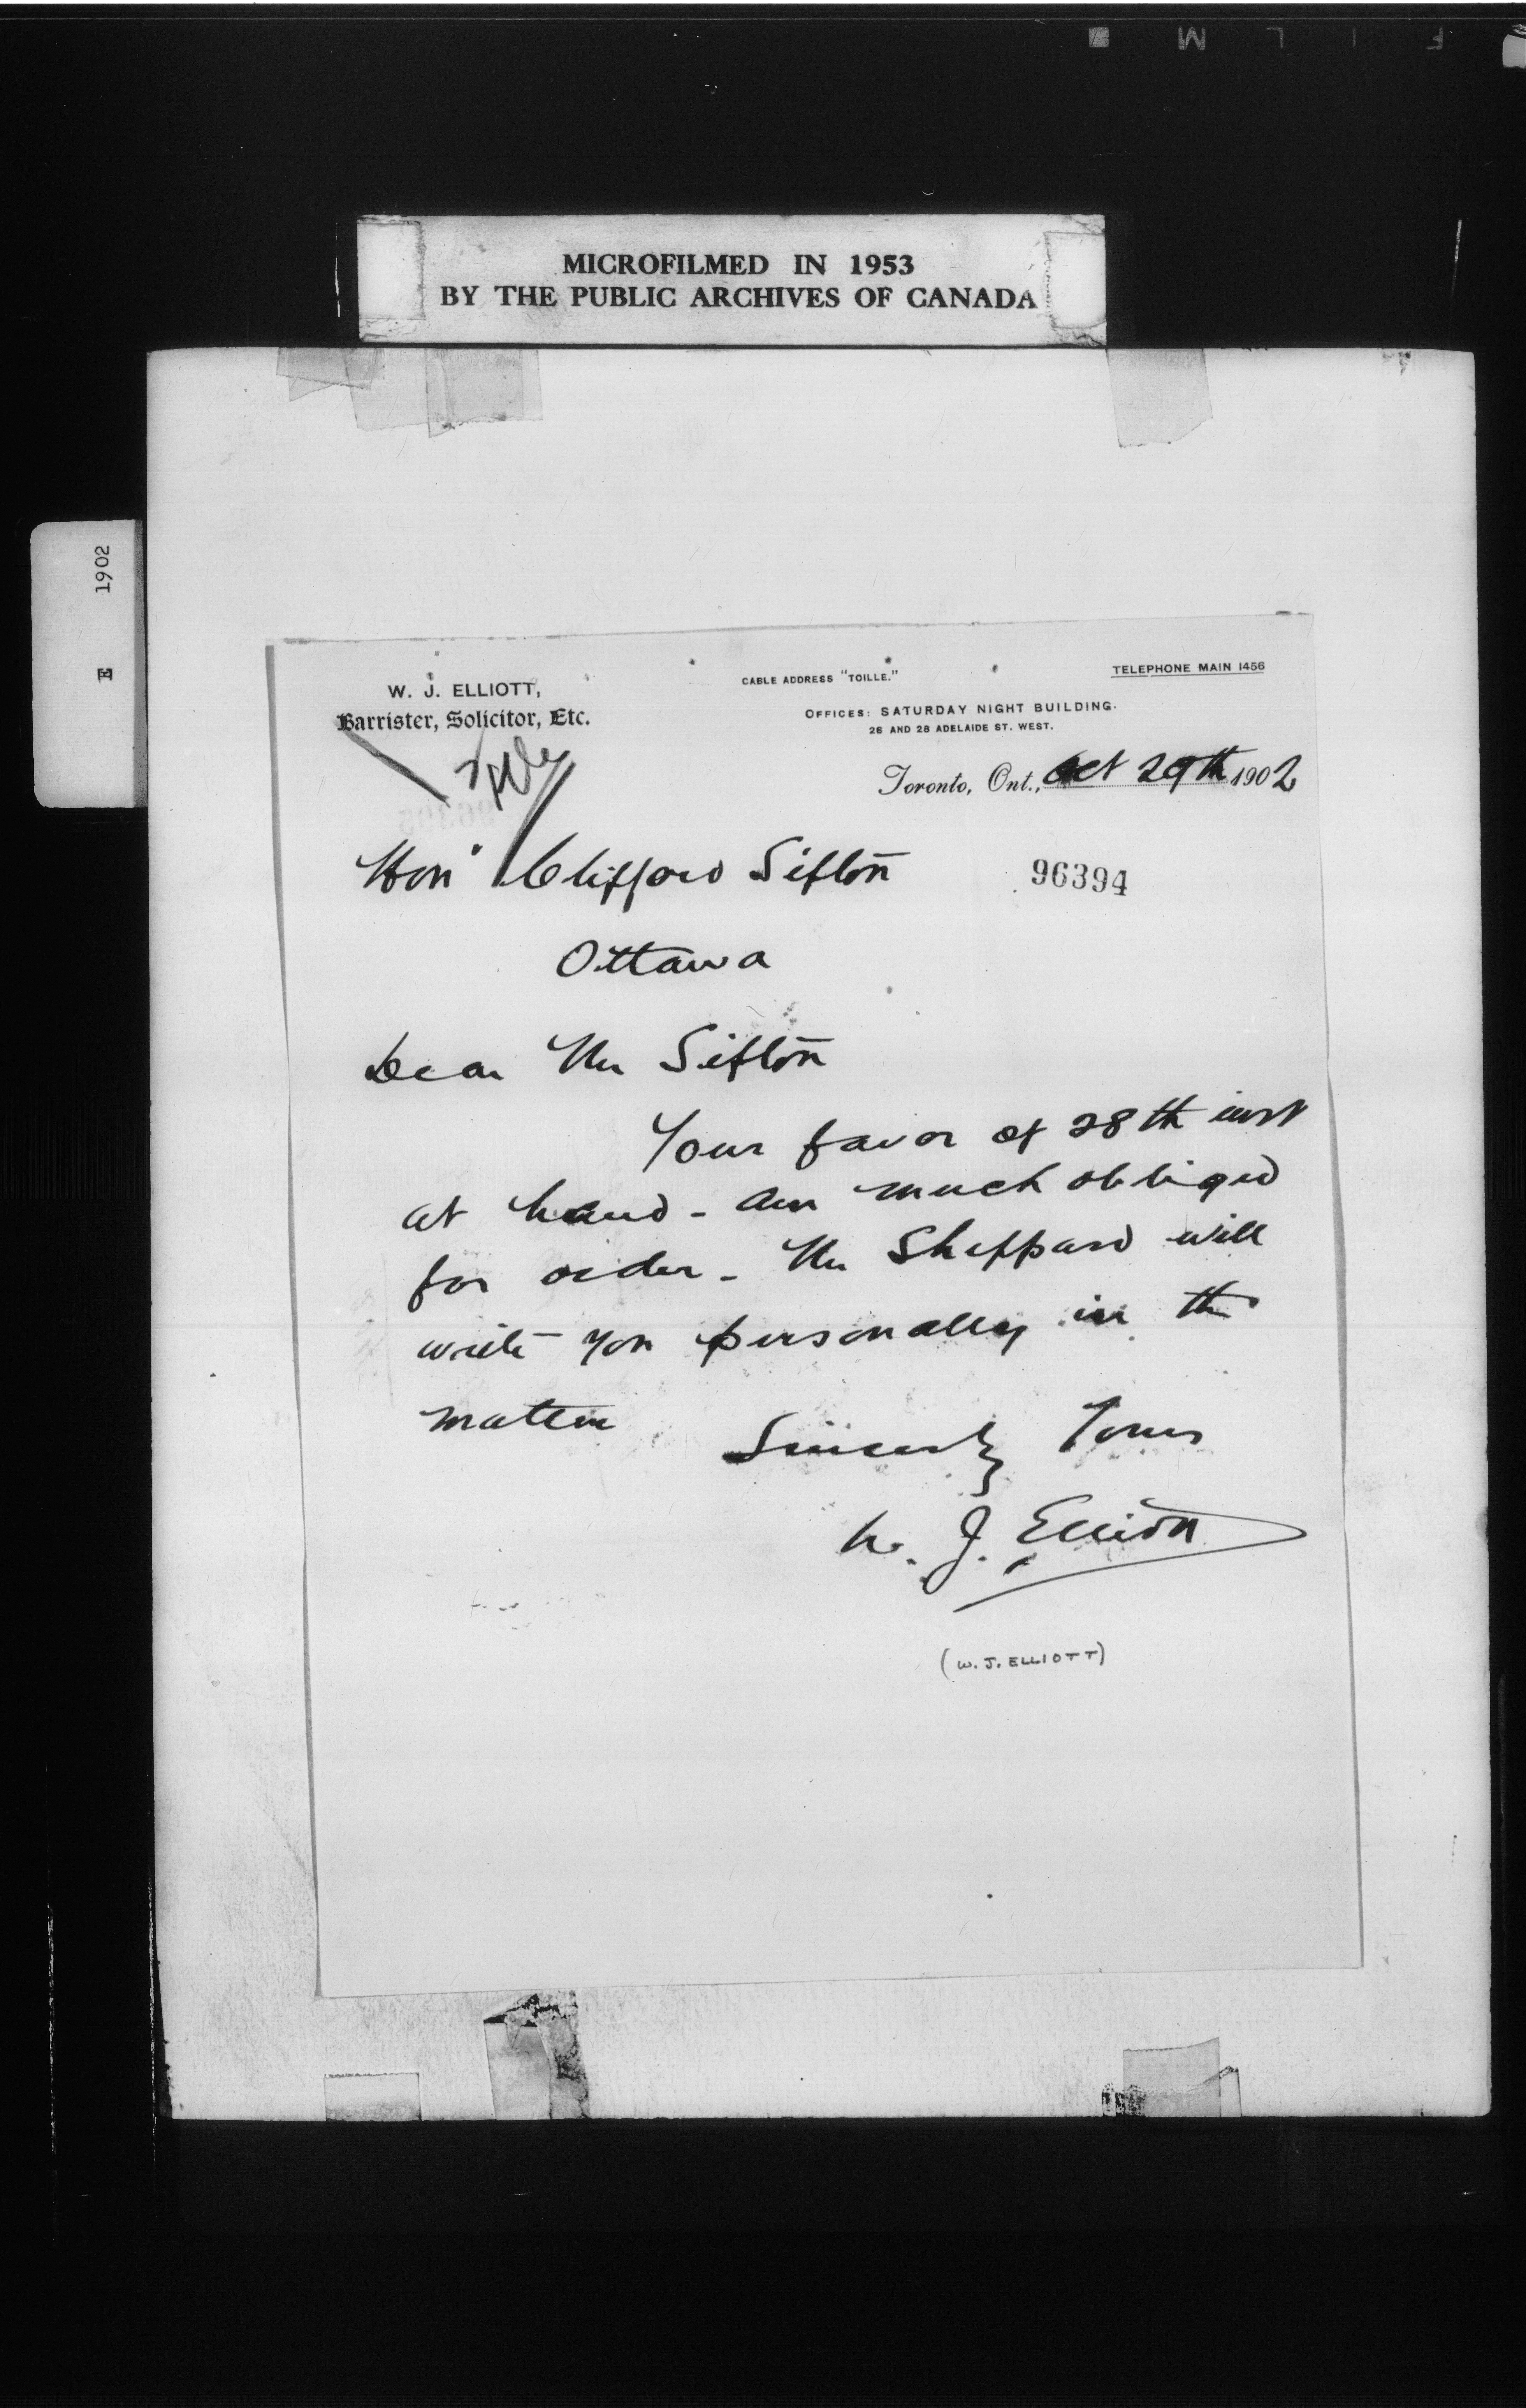 F I L M
MICROFILMED IN 1953
BY THE PUBLIC ARCHIVES OF CANADA
E 1902
W. J. ELLIOTT,
Barrister, Solicitor, Etc.
CABLE ADDRESS "TOILLE."
TELEPHONE MAIN 1456
OFFICES: SATURDAY NIGHT BUILDING.
26 AND 28 ADELAIDE ST. WEST.
File
Toronto, Ont., Oct 29th 1902
96394
Hon Clifford Sifton
Ottawa
Dear Mr Sifton
Your favor of 28th inst
at hand - Am much obliged
for order - Mr Sheppard will
write you personally in the
matter
Sincerely Yours
W. J. Elliott
(W. J. ELLIOTT)